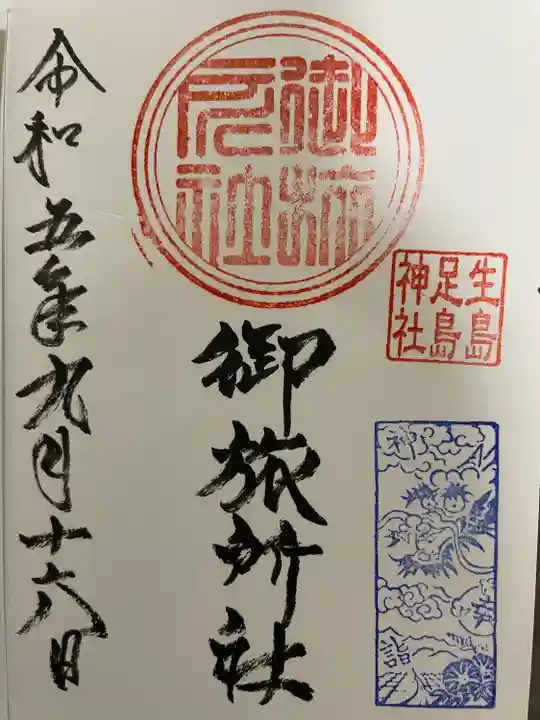 生島
足島
神社
御旅
所社
御旅所社
令和五年九月十六日
神
詣